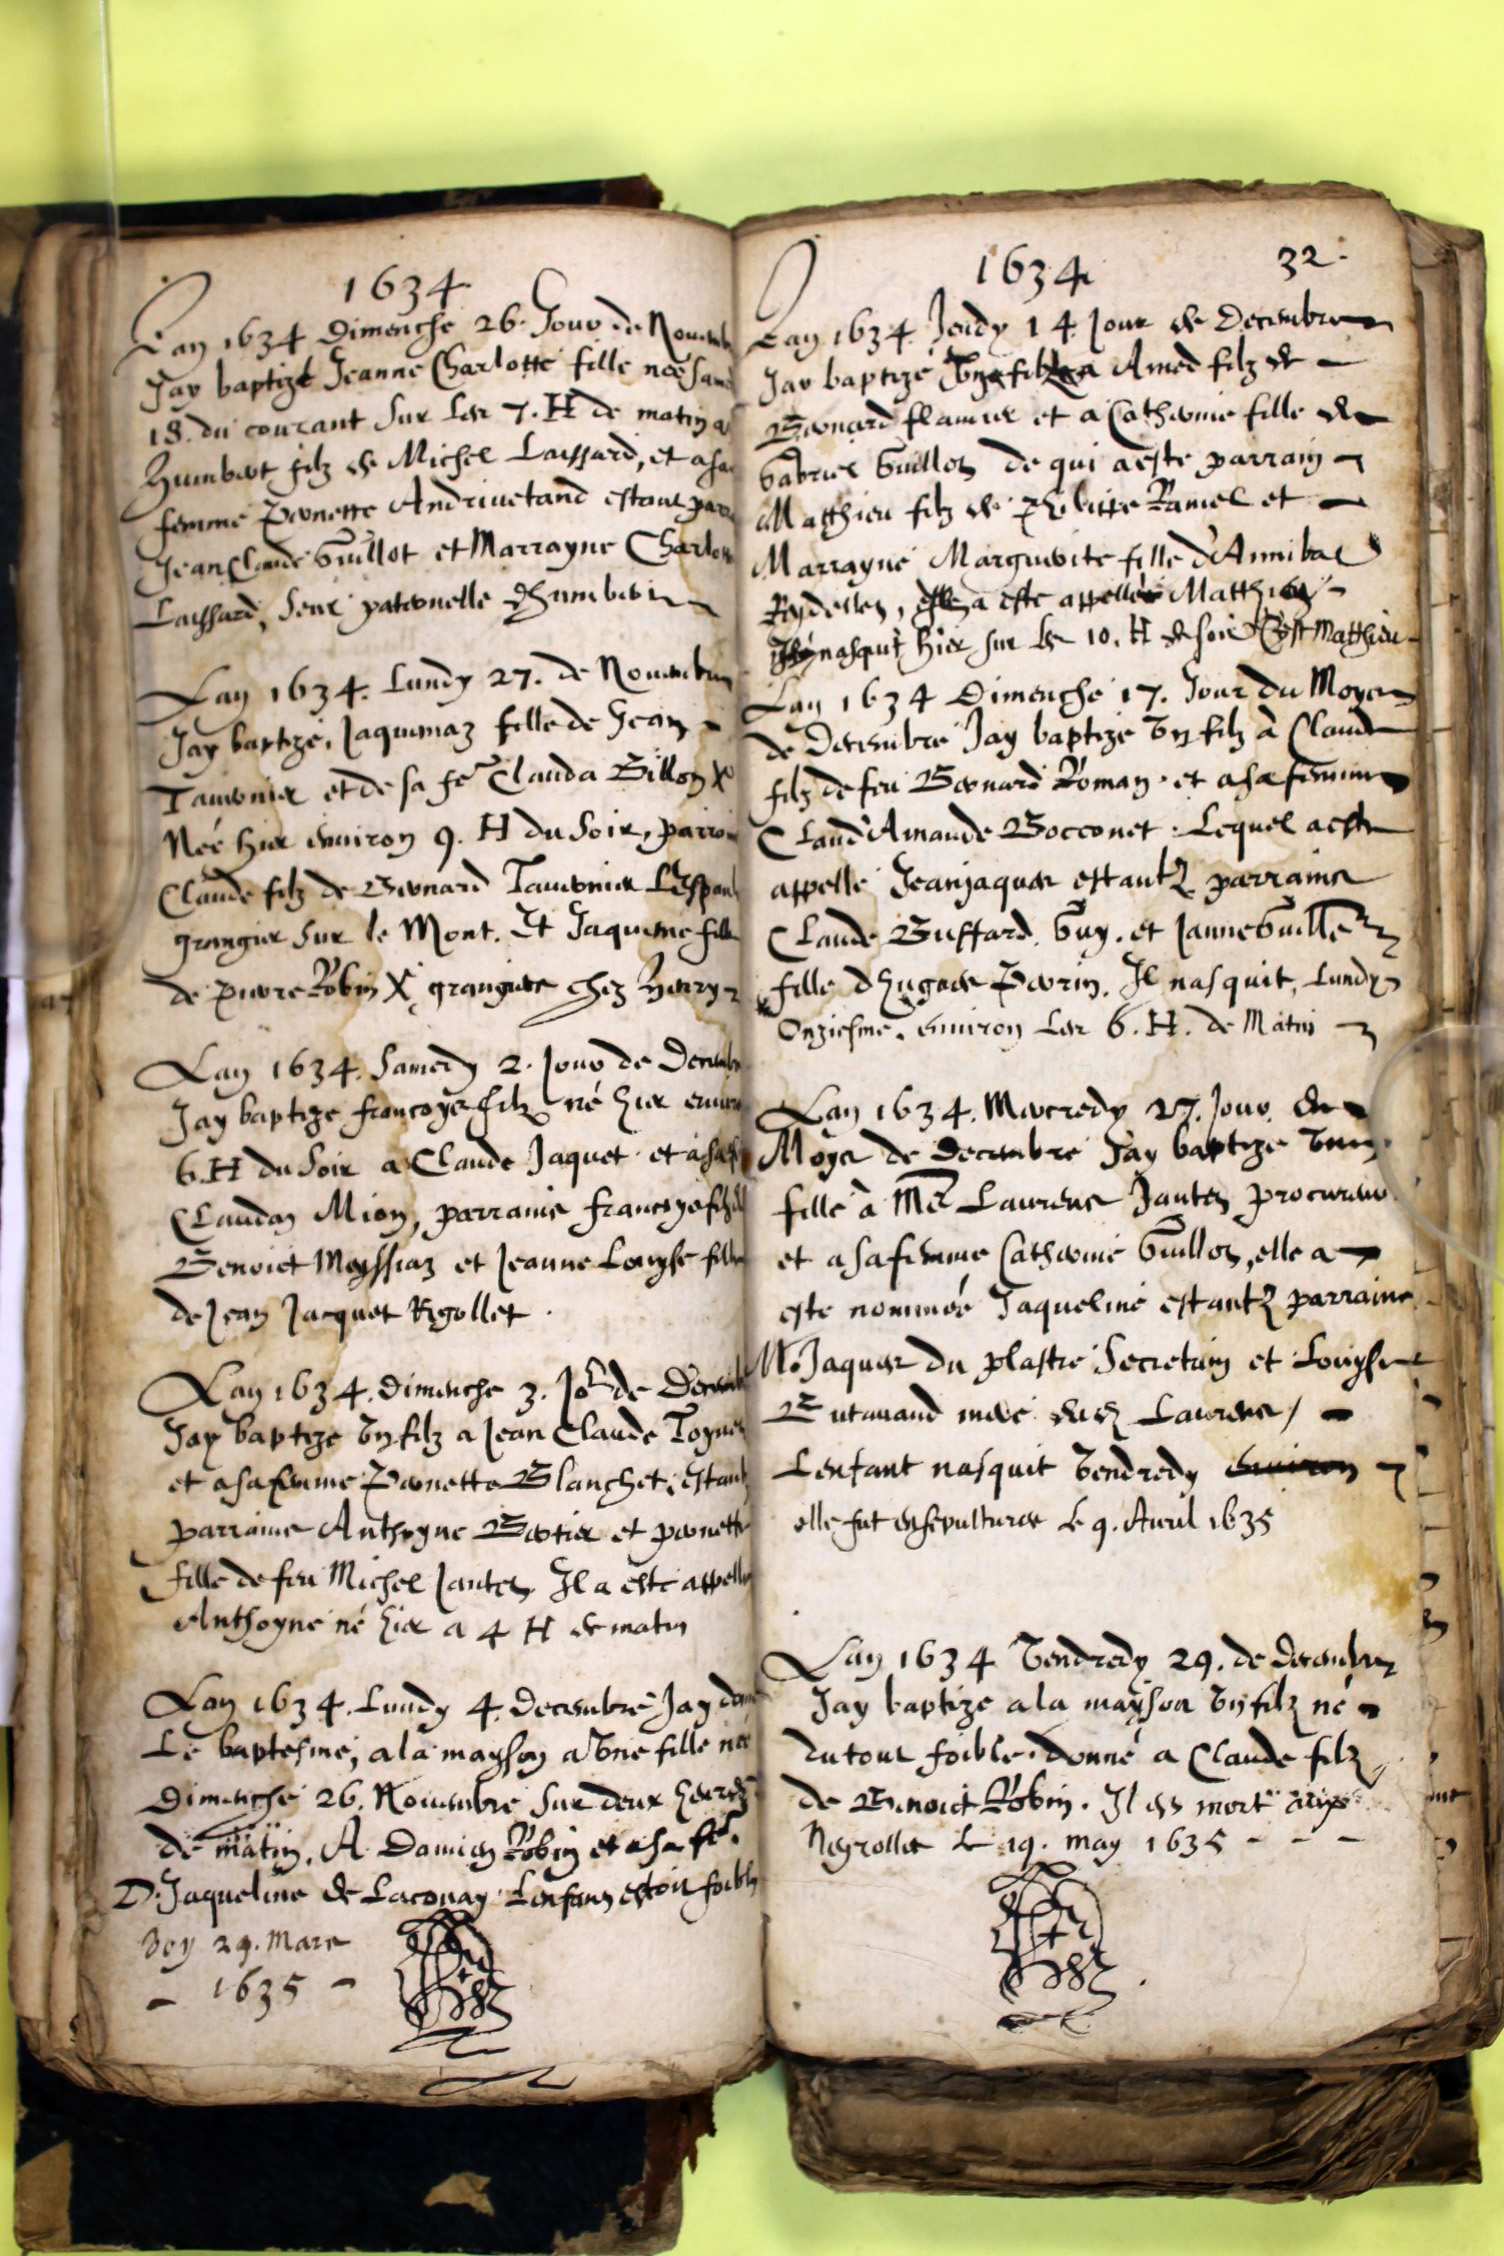 1634
Lan 1634 Dimenche 26. Jour de Novemb
Jay baptizé Jeanne Charlotte fille née sam
18. du courant sur les 7. H de matin a
Humbert filz de Michel Laissard, et a sa
femme Pernette Andrivetand estant parr
Jean Claude Guillot et Marrayne Charlot
Laissard, seur paternelle dhumbert
Lan 1634. Lundy 27. de Novembre
Jay baptizé, Jaquemaz fille de Jean
Tavernier et de sa fe Clauda Billon
Née hier environ 9. H du soir, parrai
Claude filz de Bernard Tavernier
grangier sur le Mont. Et Jaqueme fille
de pierre Robin grangiere chez Henry
Lan 1634. Samedy 2. Jour de Decemb
Jay baptize francoys filz né hier enviro
6. H du soir a Claude Jaquet et a sa
Claudaz Mion, parrains francoys filz
Benoict Meyssiaz et Jeanne Louyse fille
de Jean Jacquet Rigollet.
Lan 1634. dimenche 3. Jor de Decemb
Jay baptize Un filz a Jean Claude
et a sa femme Pernette Blanchet, estant
parrains Anthoyne Bertier et pernette
fille de feu Michel Jantet Il a este appelle
Anthoyne né hier a 4 H de matin
Lan 1634. Lundy 4. decembre Jay donn
Le baptesme, a la mayson a Une fille née
Dimenche 26. Novembre sur deux heures
de matin. A Damien Robin et a sa fe.
D. Jaqueline de Laconay Lenfant estoit foible
29. Mars
1635
1634 32.
Lan 1634. Jeudy 14. Jour de Decembre
Jay baptizé Un filz a Amed filz de
Bernard flamier et a Catherine fille de
Gabriel Guillot de qui a este parrain
Matthieu filz de Philippe Ramel et
Marrayne Marguerite fille d'Annibal
Reydellet, a este appellé Matthieu
nasquit hier sur les 10. H de soir Matthieu
Lan 1634 Dimenche 17. Jour du Moys
de Decembre Jay baptizé Un filz à Claude
filz de feu Bernard Roman. et a sa femme
Claud'Amande Bocconet. Lequel a este
appelle Jeanjaques estantz parrains
Claude Buffard. Guy. et Janne
fille dhugues Perrin. Il nasquit, Lundy
Onziesme. environ les 6. H. de Matin
Lan 1634. Mercredy 27. Jour du
Moys de Decembre Jay baptize Une
fille à Me Laurens Jantet procureur
et a sa femme Catherine Guillot, elle a
este nommée Jaqueline estantz parrains
M. Jaques du plastre Secretain et Louyse
mere dud Laurens
Lenfant nasquit Vendredy environ
elle fut ensepulturee le 9. Avril 1635
Lan 1634 Vendredy 29. de decembre
Jay baptizé a la mayson Un filz né
du tout foible. donné a Claude filz
de Benoict Robin. Il est mort
Negrollet le 19. may 1635 - - -